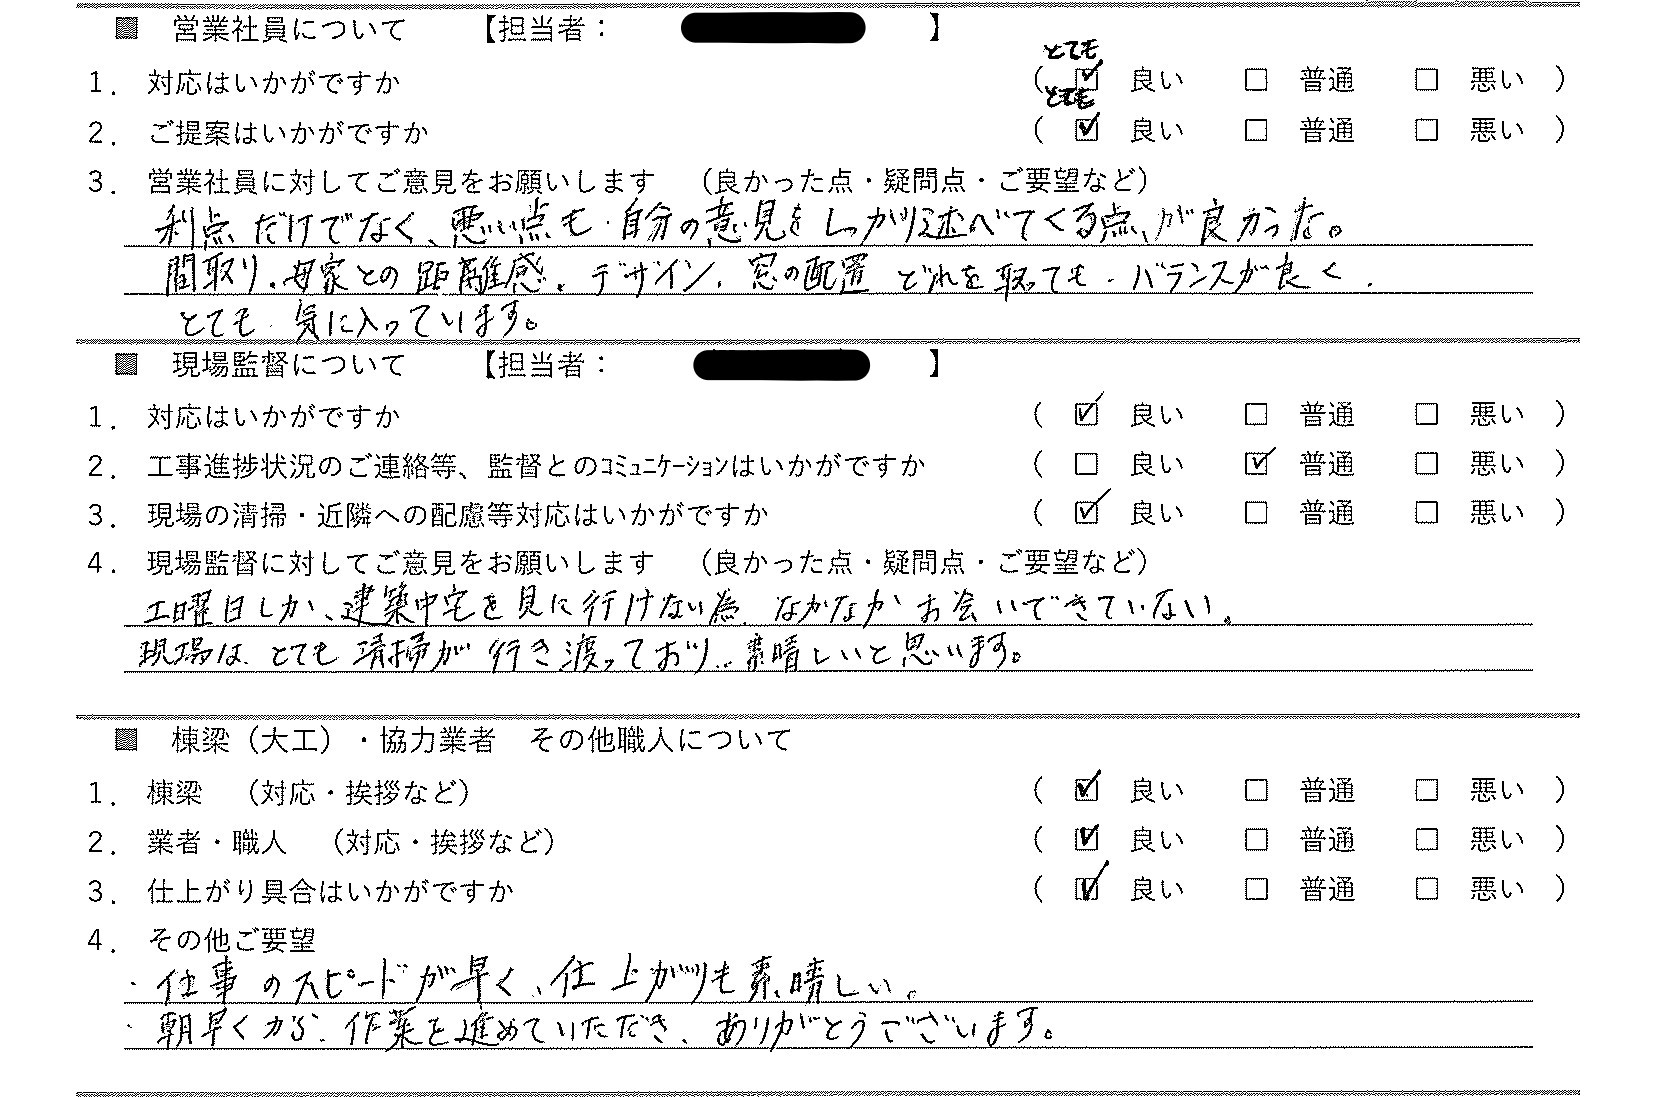 ■ 営業社員について 【担当者： 】
とても
1. 対応はいかがですか ( ☑ 良い □ 普通 □ 悪い )
とても
2. ご提案はいかがですか ( ☑ 良い □ 普通 □ 悪い )
3. 営業社員に対してご意見をお願いします （良かった点・疑問点・ご要望など）
利点だけでなく、悪い点も自分の意見をしっかり述べてくる点が良かった。
間取り、母家との距離感、デザイン、窓の配置どれを取っても、バランスが良く、
とても気に入っています。
■ 現場監督について 【担当者： 】
1. 対応はいかがですか ( ☑ 良い □ 普通 □ 悪い )
2. 工事進捗状況のご連絡等、監督とのｺﾐｭﾆｹｰｼｮﾝはいかがですか ( □ 良い ☑ 普通 □ 悪い )
3. 現場の清掃・近隣への配慮等対応はいかがですか ( ☑ 良い □ 普通 □ 悪い )
4. 現場監督に対してご意見をお願いします （良かった点・疑問点・ご要望など）
土曜日しか、建築中宅を見に行けない為、なかなかお会いできていない。
現場は、とても清掃が行き渡っており、素晴しいと思います。
■ 棟梁（大工）・協力業者 その他職人について
1. 棟梁 （対応・挨拶など） ( ☑ 良い □ 普通 □ 悪い )
2. 業者・職人 （対応・挨拶など） ( ☑ 良い □ 普通 □ 悪い )
3. 仕上がり具合はいかがですか ( ☑ 良い □ 普通 □ 悪い )
4. その他ご要望
・仕事のスピードが早く、仕上がりも素晴しい。
・朝早くから、作業を進めていただき、ありがとうございます。